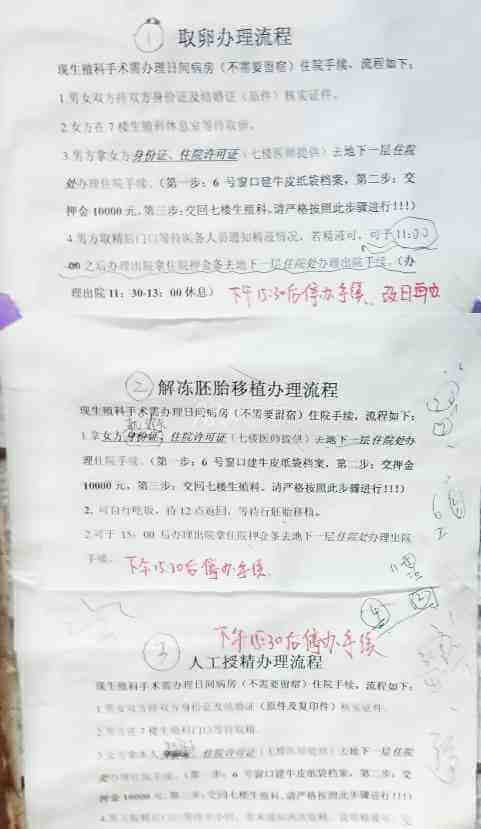 ① 取卵办理流程
现生殖科手术需办理日间病房（不需要留宿）住院手续，流程如下：
1.男女双方持双方身份证及结婚证（原件）核实证件。
2.女方在7楼生殖科休息室等待取卵。
3.男方拿女方身份证、住院许可证（七楼医师提供）去地下一层住院
处办理住院手续。（第一步：6号窗口建牛皮纸袋档案，第二步：交
押金10000元，第三步：交回七楼生殖科，请严格按照此步骤进行!!!）
4.男方取精后门口等待医务人员通知精液情况，若精液可，可于11:00
之后办理出院拿住院押金条去地下一层住院处办理出院手续。（办
理出院11：30-13：00休息） 下午15:30后停办手续、改日再办
② 解冻胚胎移植办理流程
现生殖科手术需办理日间病房（不需要留宿）住院手续，流程如下：
1.拿女方身份证、住院许可证（七楼医师提供）去地下一层住院处办
理住院手续。（第一步：6号窗口建牛皮纸袋档案，第二步：交押金
10000元，第三步：交回七楼生殖科，请严格按照此步骤进行!!!）
2.可自行吃饭，待12点返回，等待行胚胎移植。
2.可于15：00后办理出院拿住院押金条去地下一层住院处办理出院
手续。 下午15:30后停办手续
下午15:30后停办手续
③ 人工授精办理流程
现生殖科手术需办理日间病房（不需要留宿）住院手续，流程如下：
1.男女双方持双方身份证及结婚证（原件及复印件）核实证件。
2.男方在7楼生殖科门口等待取精。
3.女方拿本人 住院许可证（七楼医师提供）去地下一层住院
处办理住院手续。（第一步：6号窗口建牛皮纸袋档案，第二步：交
押金10000元，第三步：交回七楼生殖科，请严格按照此步骤进行!!!）